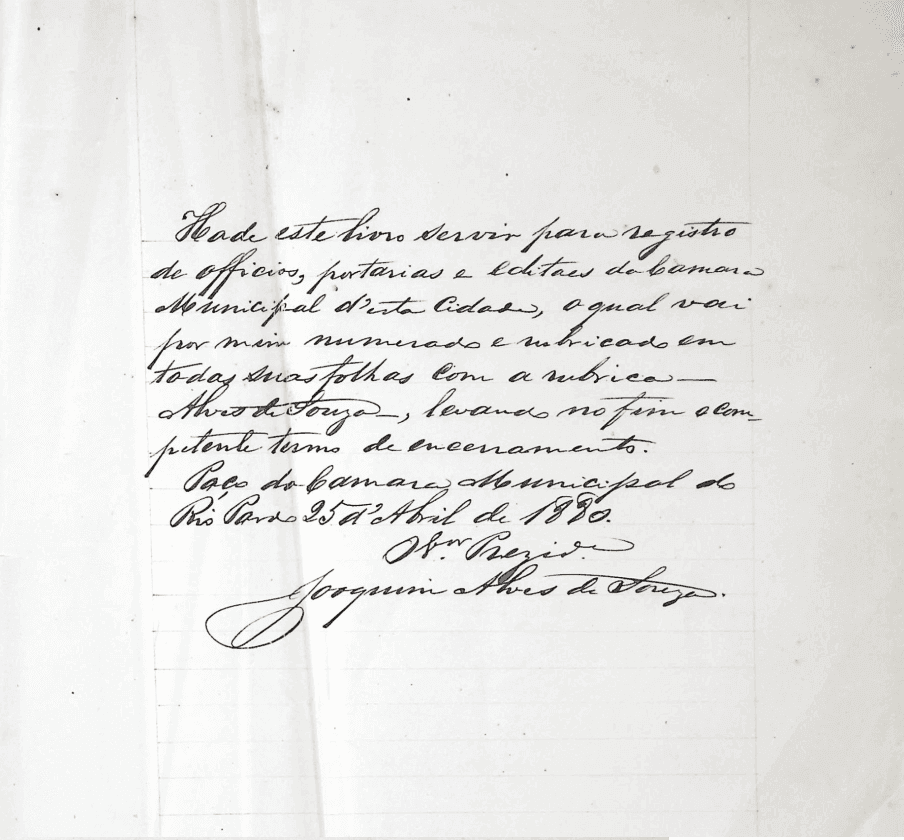 Hade este livro servir para registro
de officios, portarias e editaes da Camara
Municipal d'esta Cidade, o qual vai
por mim numerado e rubricado em
todas suas folhas com a rubrica —
Alves de Souza —, levando no fim o com-
petente termo de encerramento.
Paço da Camara Municipal do
Rio Pardo 25 d'Abril de 1880.
Prezid.e
Joaquim Alves de Souza.